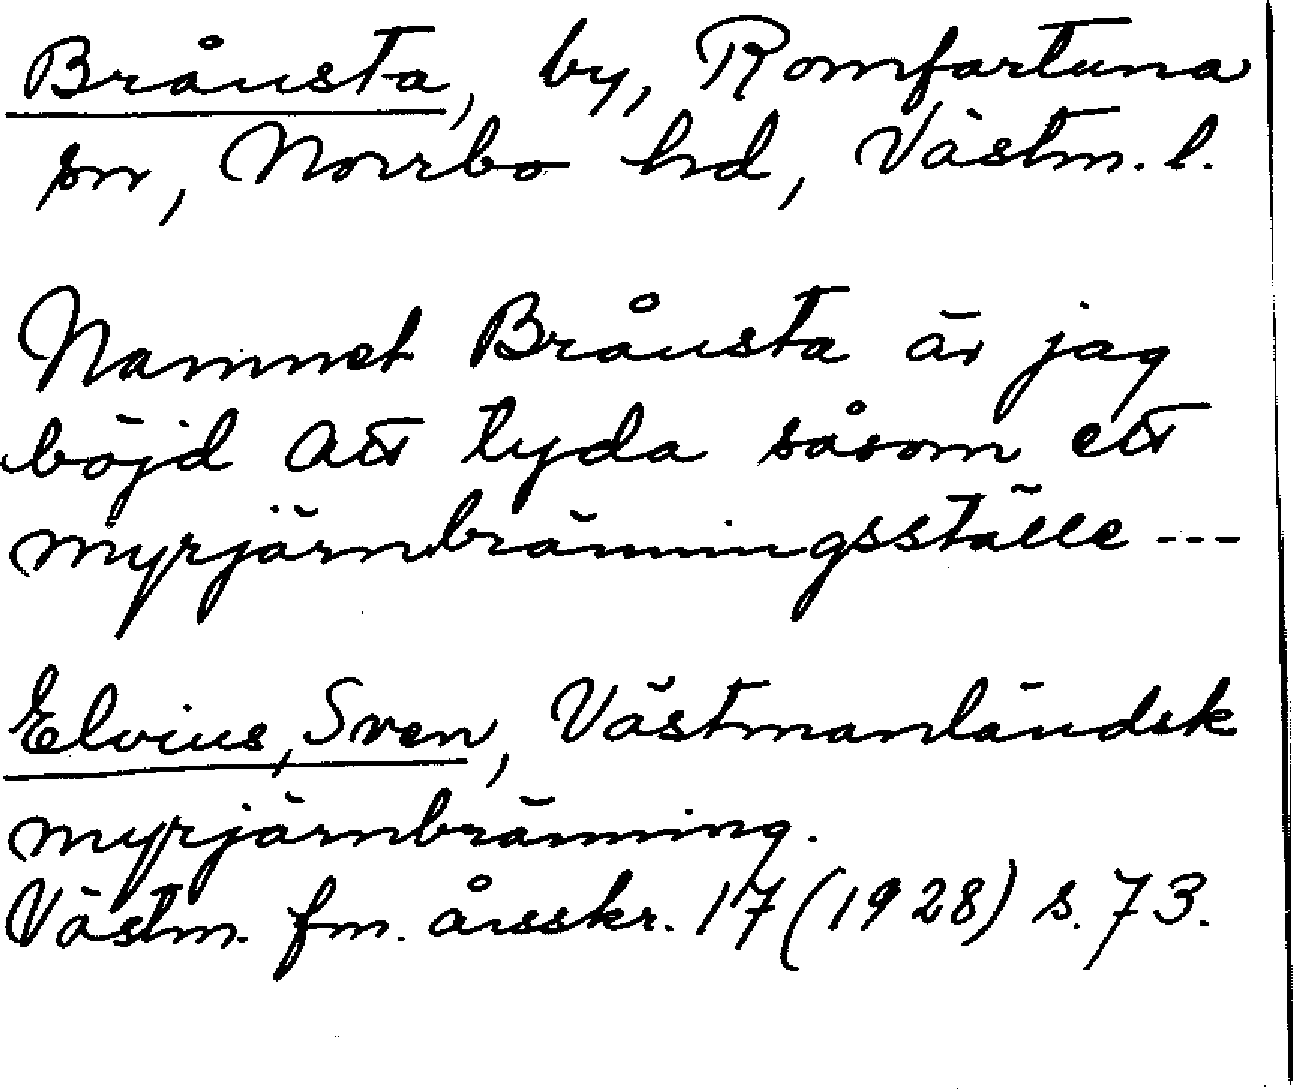 Brånsta, by, Romfartuna
sn, Norrbo hd, Västm. l.
Namnet Brånsta är jag
böjd att tyda såsom ett
myrjärnbränningsställe ---
Elvius, Sven, Västmanländsk
myrjärnbränning.
Västm. fm. årsskr. 17 (1928) s. 73.